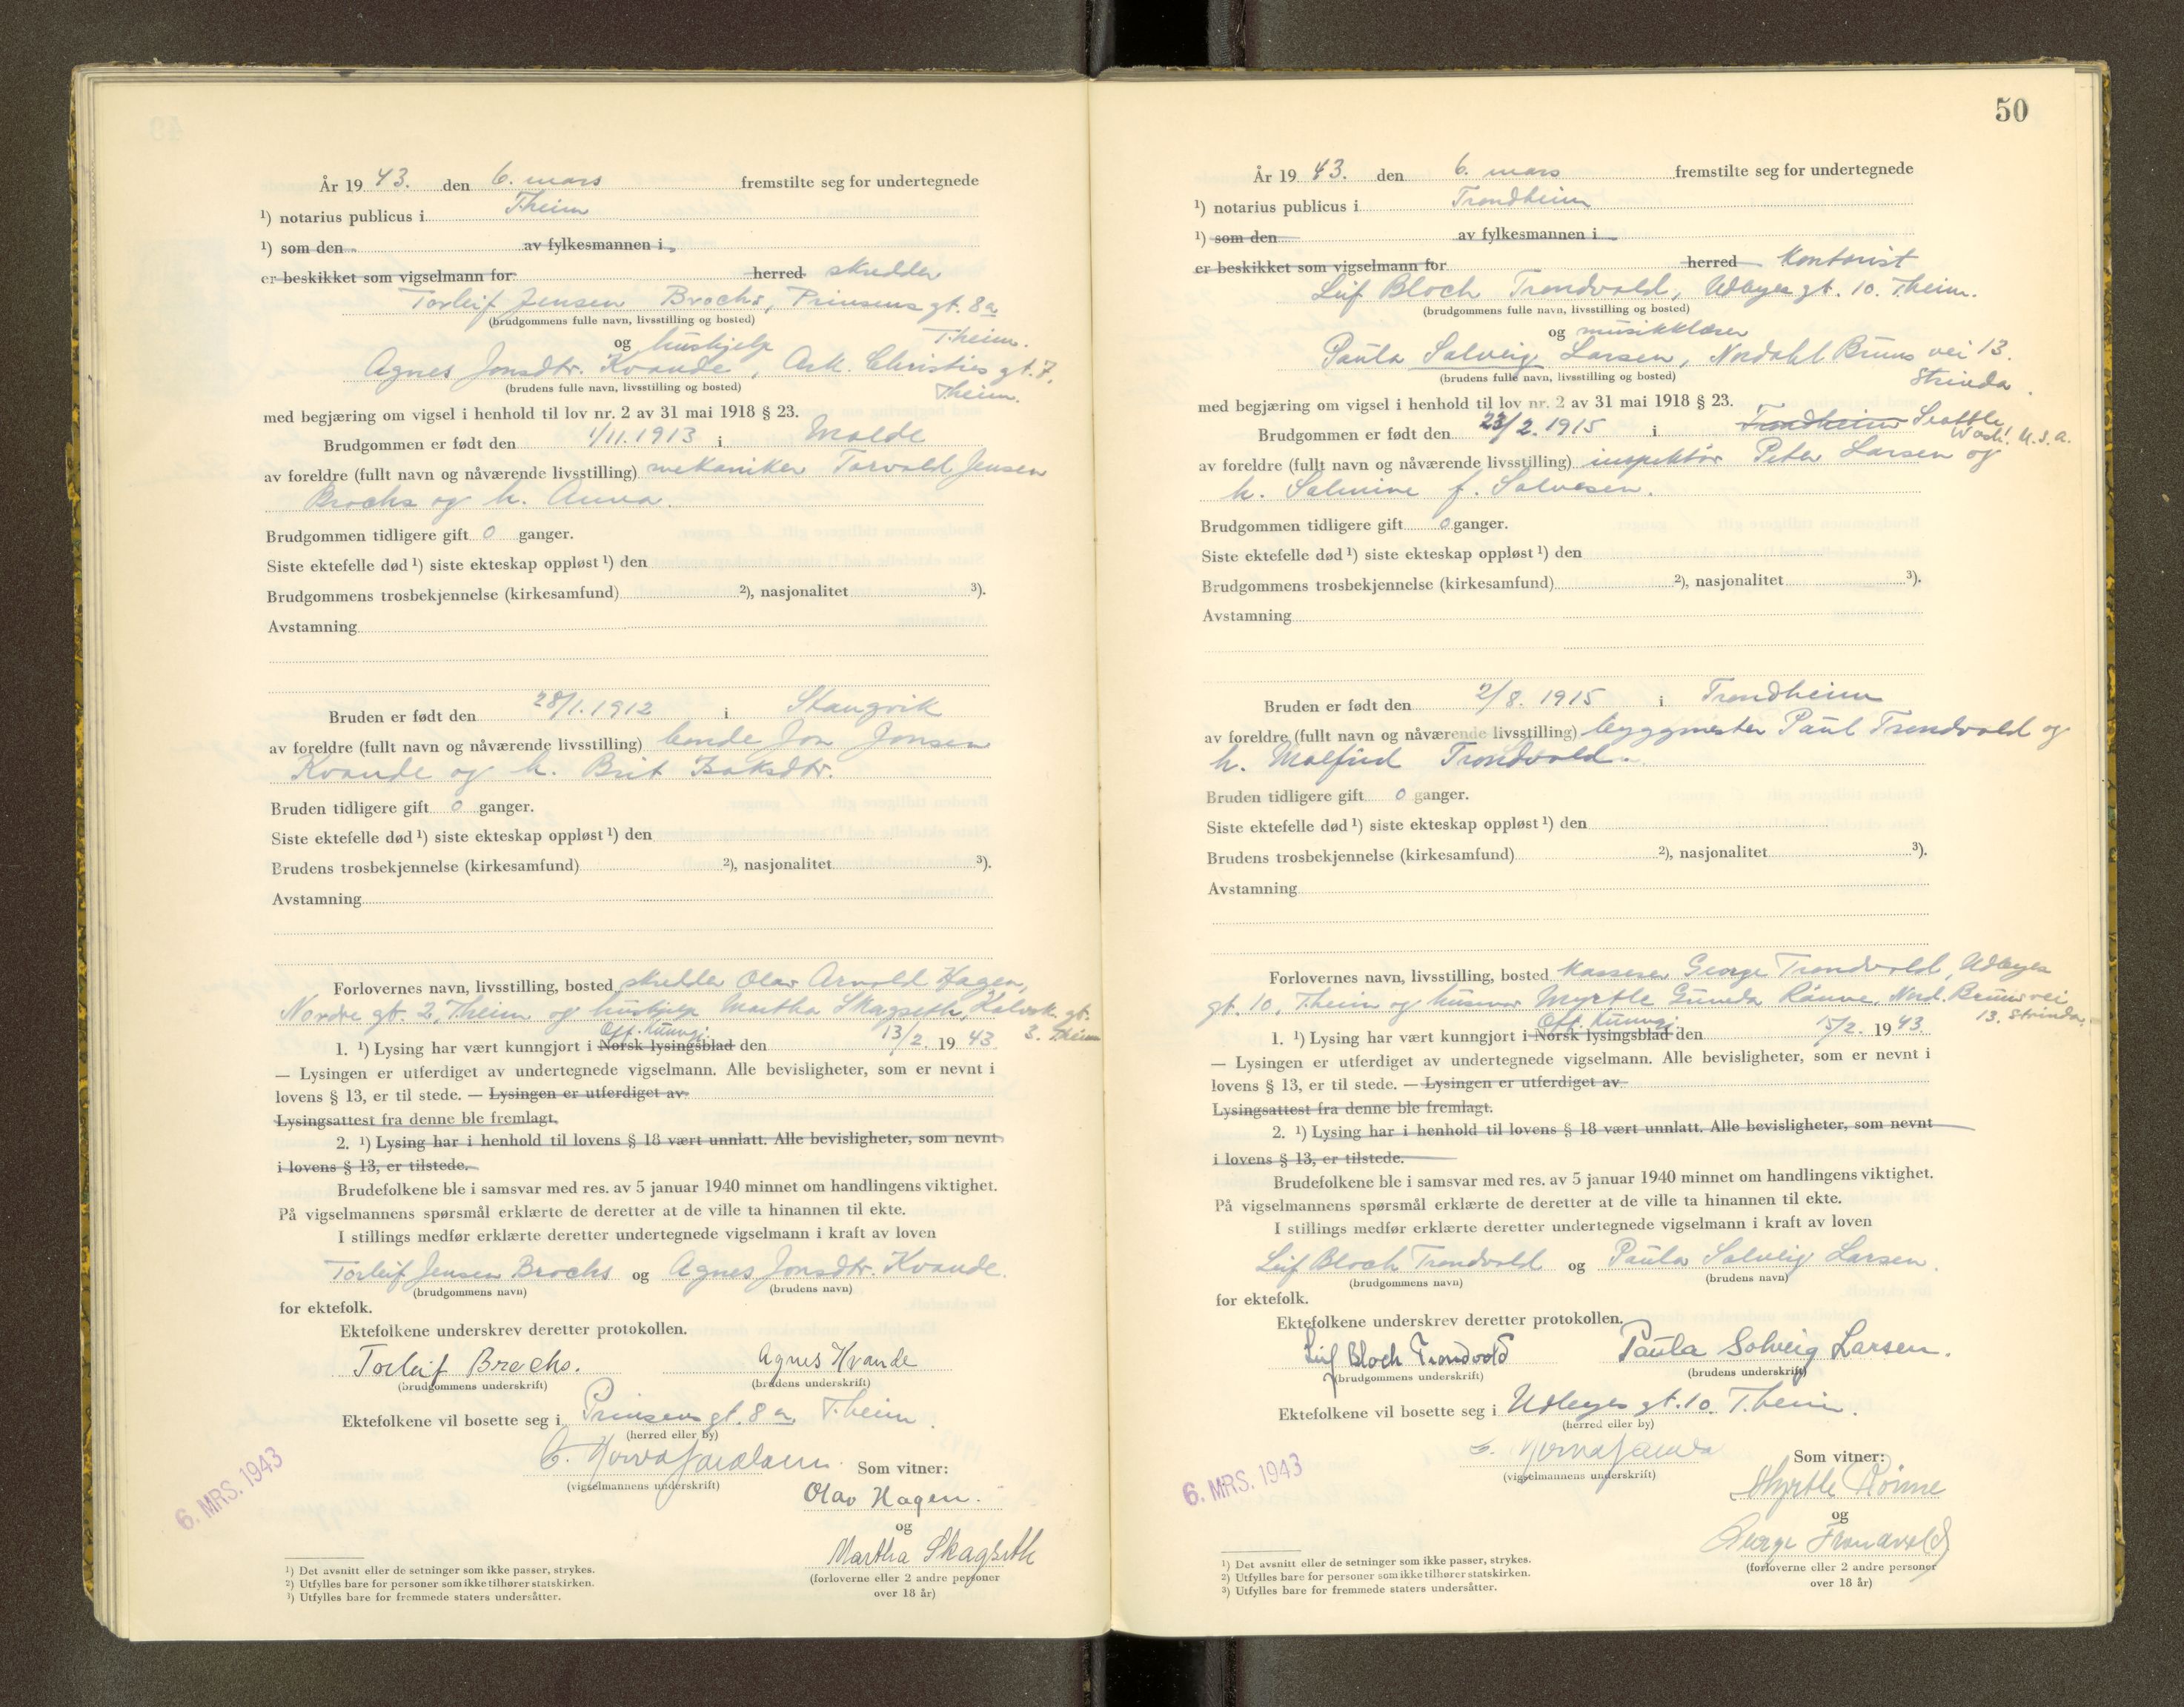 År 19 43. den 6. mars fremstilte seg for undertegnede
¹) notarius publicus i T.heim
¹) som den av fylkesmannen i
er beskikket som vigselmann for herred skredder
Torleif Jensen Brochs, Prinsens gt. 8a
(brudgommens fulle navn, livsstilling og bosted)
T.heim.
og hushjelp
Agnes Jonsdtr. Kvande, Ark. Christies gt. 7,
(brudens fulle navn, livsstilling og bosted)
T.heim.
med begjæring om vigsel i henhold til lov nr. 2 av 31 mai 1918 § 23.
Brudgommen er født den 1/11. 1913 i Molde
av foreldre (fullt navn og nåværende livsstilling) mekaniker Torvald Jensen
Brochs og h. Anna.
Brudgommen tidligere gift 0 ganger.
Siste ektefelle død ¹) siste ekteskap oppløst ¹) den
Brudgommens trosbekjennelse (kirkesamfund) ²), nasjonalitet ³).
Avstamning
Bruden er født den 28/1. 1912 i Stangvik
av foreldre (fullt navn og nåværende livsstilling) bonde Jon Jonsen
Kvande og h. Brit Isaksdtr.
Bruden tidligere gift 0 ganger.
Siste ektefelle død ¹) siste ekteskap oppløst ¹) den
Brudens trosbekjennelse (kirkesamfund) ²), nasjonalitet ³).
Avstamning
Forlovernes navn, livsstilling, bosted skredder Olav Arnold Hagen,
Nordre gt. 2, T.heim og hushjelp Martha Skagseth, Kalvsk. gt.
3. T.heim
Off. kunngj.
1. ¹) Lysing har vært kunngjort i Norsk lysingsblad den 13/2. 19 43.
— Lysingen er utferdiget av undertegnede vigselmann. Alle bevisligheter, som er nevnt i
lovens § 13, er til stede. — Lysingen er utferdiget av
Lysingsattest fra denne ble fremlagt.
2. ¹) Lysing har i henhold til lovens § 18 vært unnlatt. Alle bevisligheter, som nevnt
i lovens § 13, er tilstede.
Brudefolkene ble i samsvar med res. av 5 januar 1940 minnet om handlingens viktighet.
På vigselmannens spørsmål erklærte de deretter at de ville ta hinannen til ekte.
I stillings medfør erklærte deretter undertegnede vigselmann i kraft av loven
Torleif Jensen Brochs og Agnes Jonsdtr. Kvande.
(brudgommens navn) (brudens navn)
for ektefolk.
Ektefolkene underskrev deretter protokollen.
Torleif Brochs. Agnes Kvande
(brudgommens underskrift) (brudens underskrift)
Ektefolkene vil bosette seg i Prinsens gt. 8a, T.heim.
(herred eller by)
Som vitner:
(vigselmannens underskrift)
6. MRS. 1943
Olav Hagen.
og
Martha Skagseth
(forloverne eller 2 andre personer
over 18 år)
¹) Det avsnitt eller de setninger som ikke passer, strykes.
²) Utfylles bare for personer som ikke tilhører statskirken.
³) Utfylles bare for fremmede staters undersåtter.
50
År 19 43. den 6. mars fremstilte seg for undertegnede
¹) notarius publicus i Trondheim
¹) som den av fylkesmannen i
er beskikket som vigselmann for herred Kontorist
Leif Bloch Trondvold, Udbyes gt. 10. T.heim.
(brudgommens fulle navn, livsstilling og bosted)
og musikklærer
Paula Solveig Larsen, Nordahl Bruns vei 13.
(brudens fulle navn, livsstilling og bosted)
Strinda.
med begjæring om vigsel i henhold til lov nr. 2 av 31 mai 1918 § 23.
Brudgommen er født den 23/2. 1915 i Trondheim Seattle,
Wash. U.S.A.
av foreldre (fullt navn og nåværende livsstilling) inspektör Peter Larsen og
h. Salmine f. Salvesen.
Brudgommen tidligere gift 0 ganger.
Siste ektefelle død ¹) siste ekteskap oppløst ¹) den
Brudgommens trosbekjennelse (kirkesamfund) ²), nasjonalitet ³).
Avstamning
Bruden er født den 2/8. 1915 i Trondheim
av foreldre (fullt navn og nåværende livsstilling) byggmester Paul Trondvold og
h. Malfrid Trondvold.
Bruden tidligere gift 0 ganger.
Siste ektefelle død ¹) siste ekteskap oppløst ¹) den
Brudens trosbekjennelse (kirkesamfund) ²), nasjonalitet ³).
Avstamning
Forlovernes navn, livsstilling, bosted kasserer George Trondvold, Udbyes
gt. 10, T.heim og husmor Myrtle Gunda Rönne, Nord. Bruns vei
13. Strinda.
Off. kunngj.
1. ¹) Lysing har vært kunngjort i Norsk lysingsblad den 15/2. 19 43.
— Lysingen er utferdiget av undertegnede vigselmann. Alle bevisligheter, som er nevnt i
lovens § 13, er til stede. — Lysingen er utferdiget av
Lysingsattest fra denne ble fremlagt.
2. ¹) Lysing har i henhold til lovens § 18 vært unnlatt. Alle bevisligheter, som nevnt
i lovens § 13, er tilstede.
Brudefolkene ble i samsvar med res. av 5 januar 1940 minnet om handlingens viktighet.
På vigselmannens spørsmål erklærte de deretter at de ville ta hinannen til ekte.
I stillings medfør erklærte deretter undertegnede vigselmann i kraft av loven
Leif Bloch Trondvold og Paula Solveig Larsen.
(brudgommens navn) (brudens navn)
for ektefolk.
Ektefolkene underskrev deretter protokollen.
Leif Bloch Trondvold Paula Solveig Larsen.
(brudgommens underskrift) (brudens underskrift)
Ektefolkene vil bosette seg i Udbyes gt. 10. T.heim.
(herred eller by)
Som vitner:
(vigselmannens underskrift)
6. MRS. 1943
Myrtle Rönne
og
George Trondvold
(forloverne eller 2 andre personer
over 18 år)
¹) Det avsnitt eller de setninger som ikke passer, strykes.
²) Utfylles bare for personer som ikke tilhører statskirken.
³) Utfylles bare for fremmede staters undersåtter.